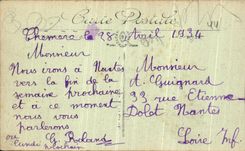 Carte Postale
Themere le 28 Avril 1934
Monsieur
Nous irons à Nantes
vers la fin de la
semaine prochaine
et à ce moment
nous vous
parlerons
ou
Lundi prochain
G. Roland
Monsieur
A. Guignard
33 rue Etienne
Dolet Nantes
Loire Inf